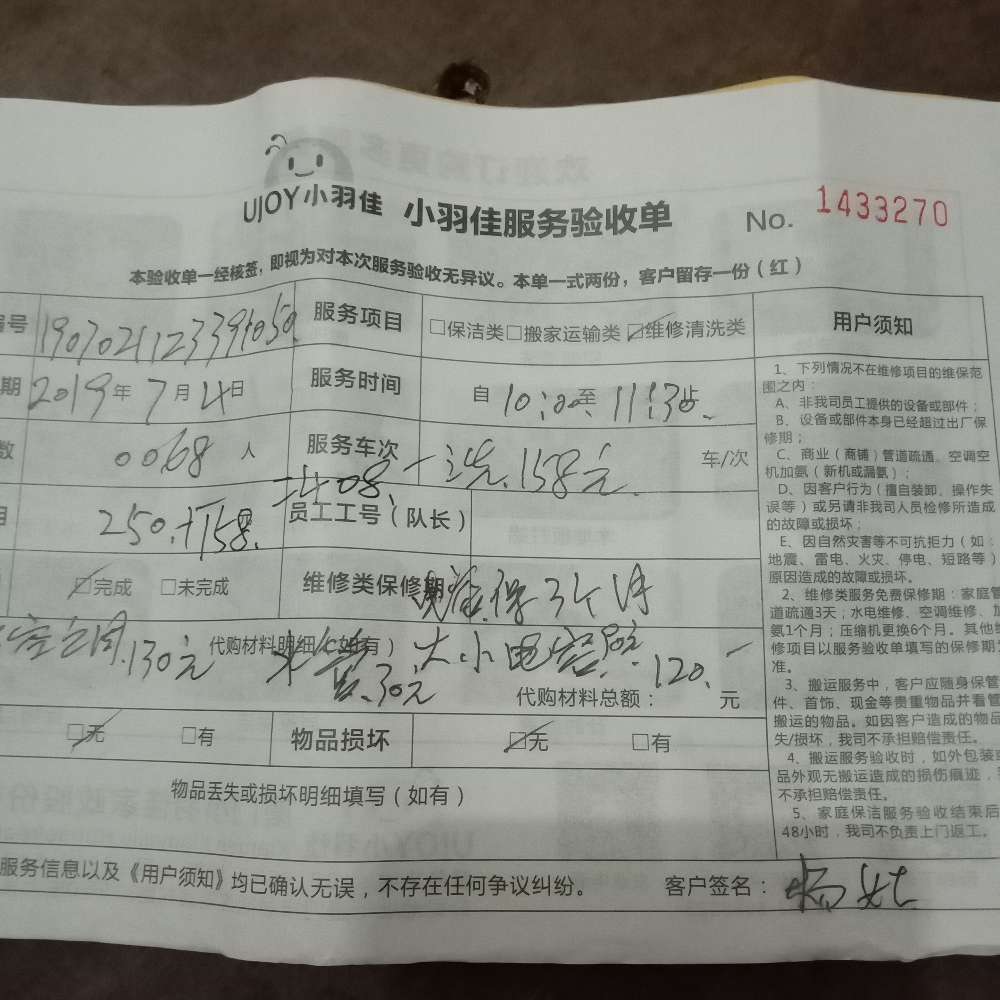 UJOY小羽佳 小羽佳服务验收单 No. 1433270
本验收单一经核签，即视为对本次服务验收无异议。本单一式两份，客户留存一份（红）
编号 服务项目 □保洁类□搬家运输类☑维修清洗类 用户须知
期 2019年7月4日 服务时间 自10:00至11:30止
数 0068人 服务车次 一次.158元. 车/次
=408.
250.+158. 员工工号（队长）
☑完成 □未完成 维修类保修期 保3个月
130元 代购材料明细（如有） 30元 大小电容 120. 元
代购材料总额：
☑无 □有 物品损坏 ☑无 □有
物品丢失或损坏明细填写（如有）
服务信息以及《用户须知》均已确认无误，不存在任何争议纠纷。 客户签名：
1、下列情况不在维修项目的维保范
围之内：
A、非我司员工提供的设备或部件；
B、设备或部件本身已经超过出厂保
修期；
C、商业（商铺）管道疏通、空调空
机加氨（新机或漏氨）；
D、因客户行为（擅自装卸、操作失
误等）或另请非我司人员检修所造成
的故障或损坏；
E、因自然灾害等不可抗拒力（如：
地震、雷电、火灾、停电、短路等）
原因造成的故障或损坏。
2、维修类服务免费保修期：家庭管
道疏通3天；水电维修、空调维修、加
氨1个月；压缩机更换6个月。其他维
修项目以服务验收单填写的保修期为
准。
3、搬运服务中，客户应随身保管
件、首饰、现金等贵重物品并看管
搬运的物品。如因客户造成的物品
失/损坏，我司不承担赔偿责任。
4、搬运服务验收时，如外包装或
品外观无搬运造成的损伤痕迹，
不承担赔偿责任。
5、家庭保洁服务验收结束后
48小时，我司不负责上门返工。